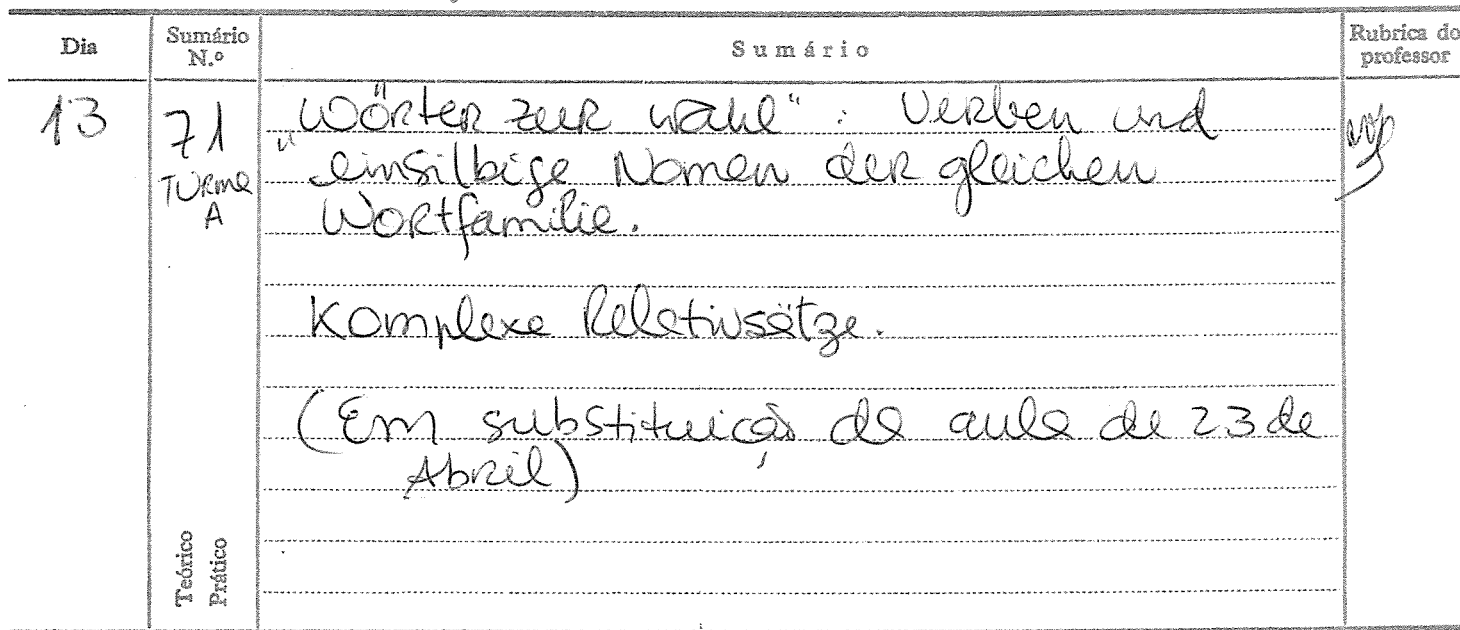 Dia
Sumário N.º
Sumário
Rubrica do professor
13
71
TURMA A
"Wörter zur Wahl": Verben und
einsilbige Nomen der gleichen
Wortfamilie.
Komplexe Relativsätze.
(Em substituição da aula de 23 de
Abril)
Teórico
Prático